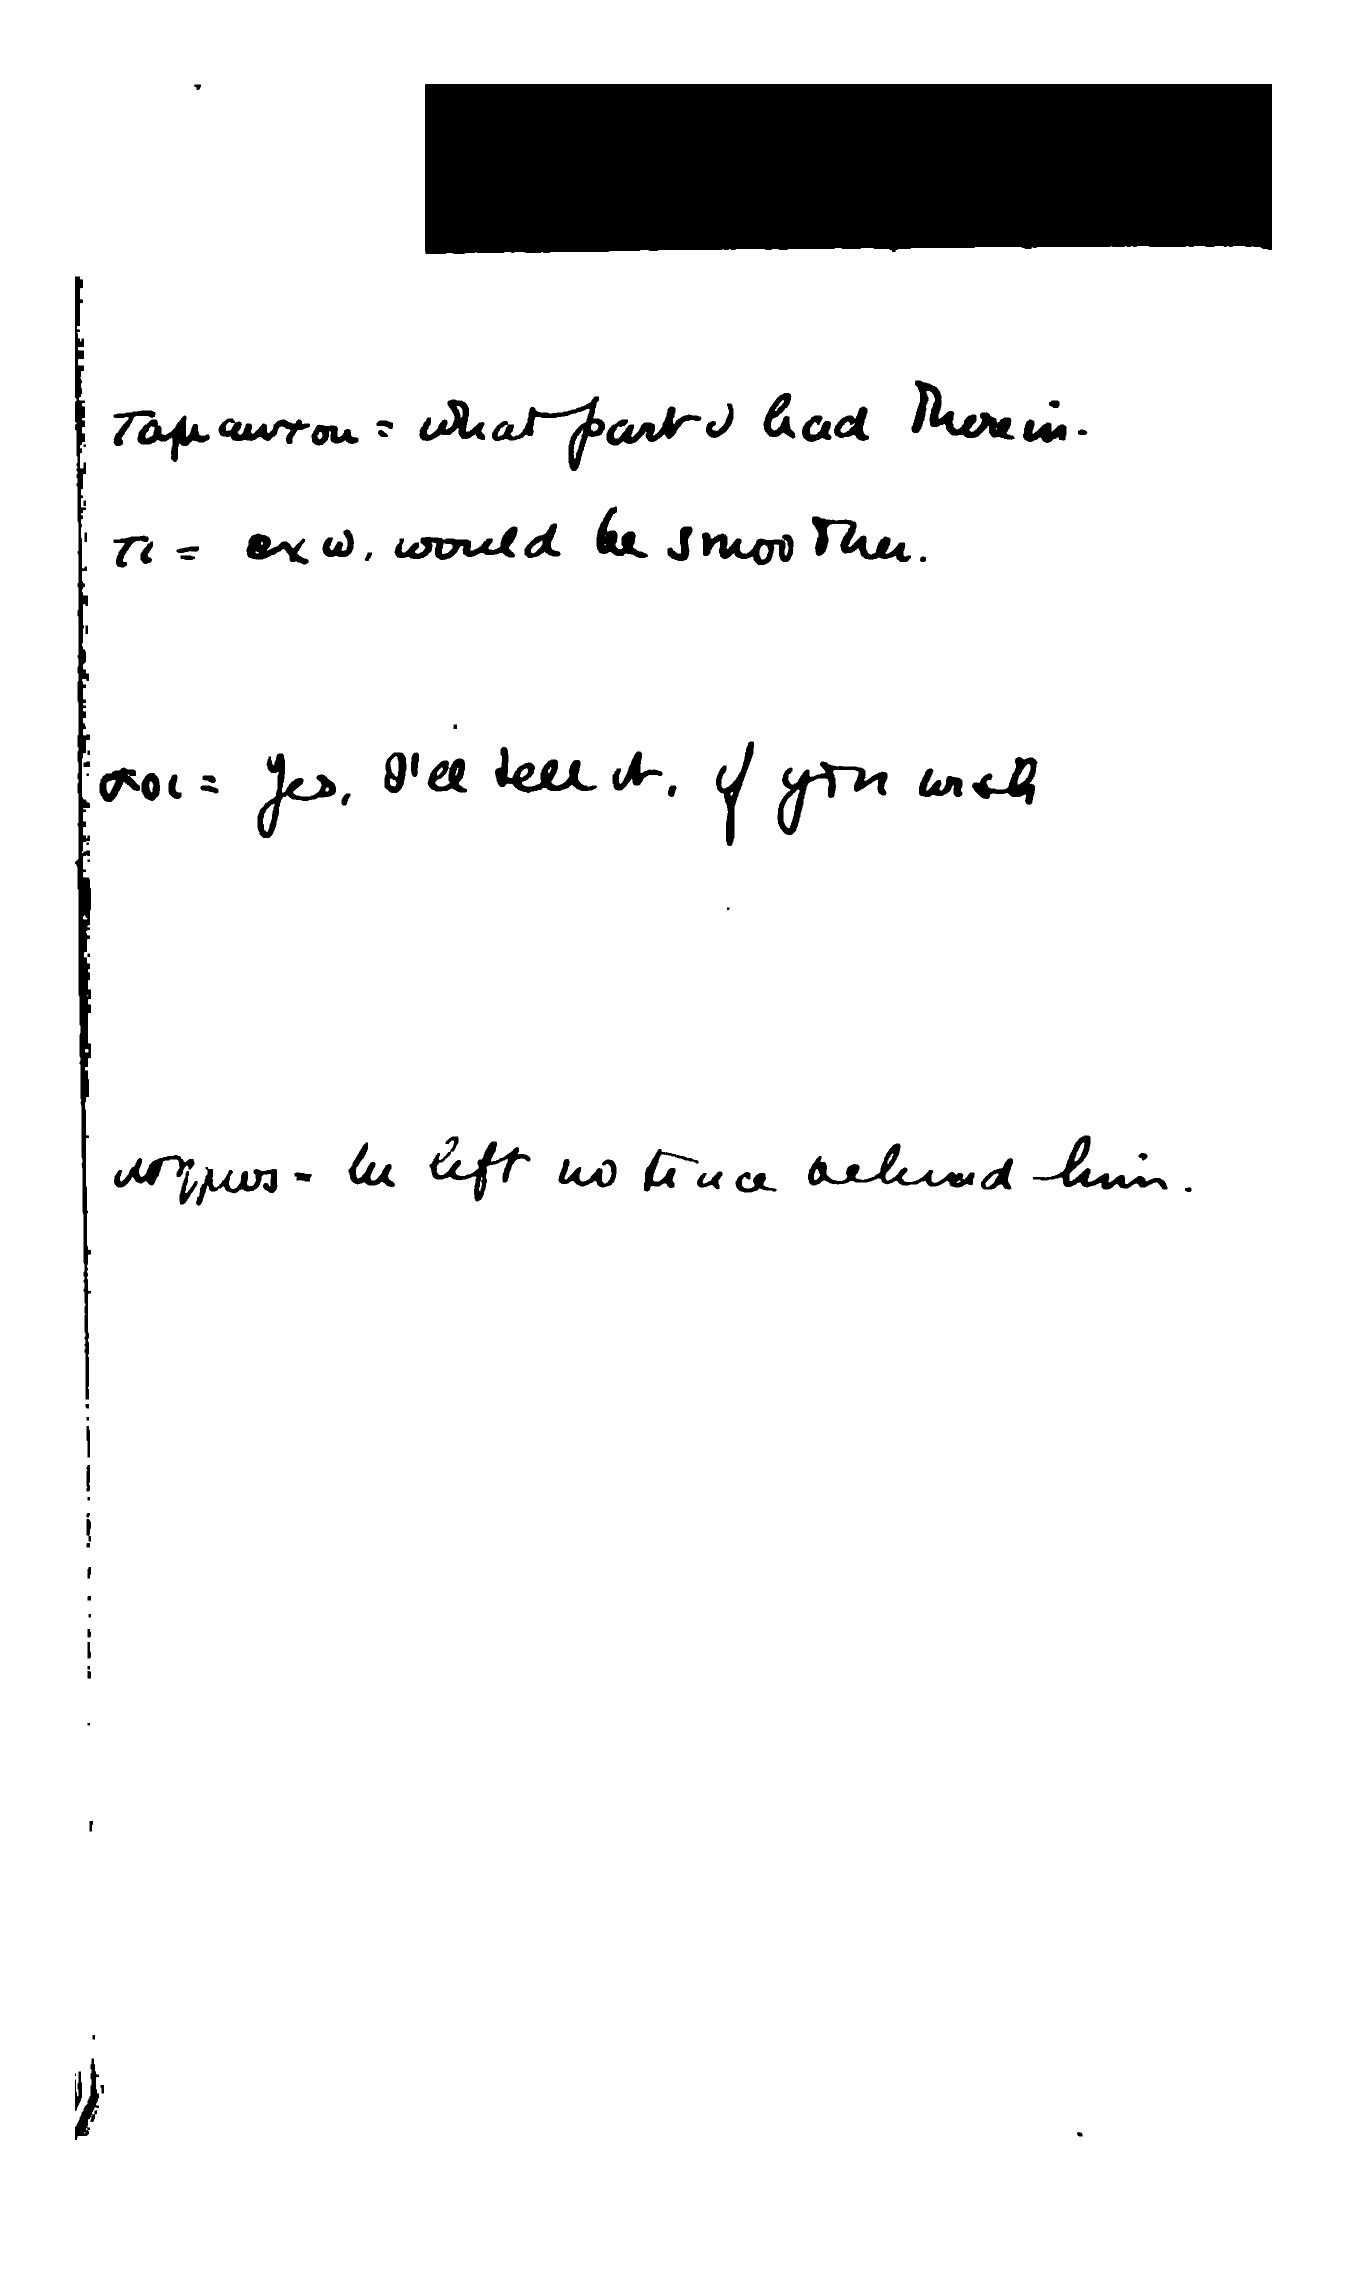 ταμ αυτου = what part I had therein.
τι = εχω. would be smoother.
σοι = Yes, I'll tell it, if you wish
= he left no trace behind him.